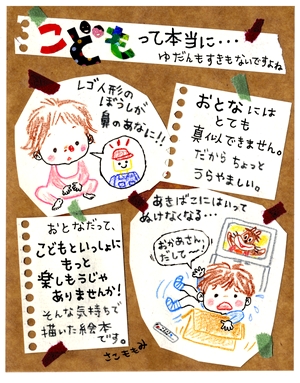 こどもって本当に…
ゆだんもすきもないですよね
レゴ人形の
ぼうしが
鼻のあなに!!
おとなには
とても
真似できません。
だから ちょっと
うらやましい。
あきばこにはいって
ぬけなくなる…
おかあさん、
だして〜
おとなだって、
こどもといっしょに
もっと
楽しもうじゃ
ありませんか!
そんな気持ちで
描いた絵本
です。
さこももみ